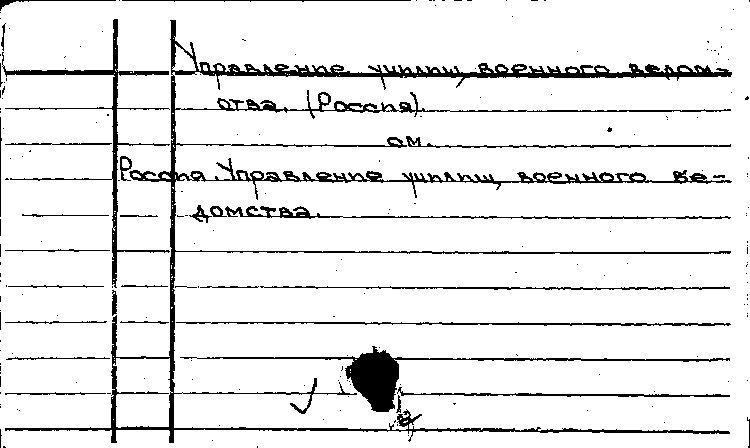 Управление училищ военного ведом-
ства. (Россия).
см.
Россия. Управление училищ военного ве-
домства.